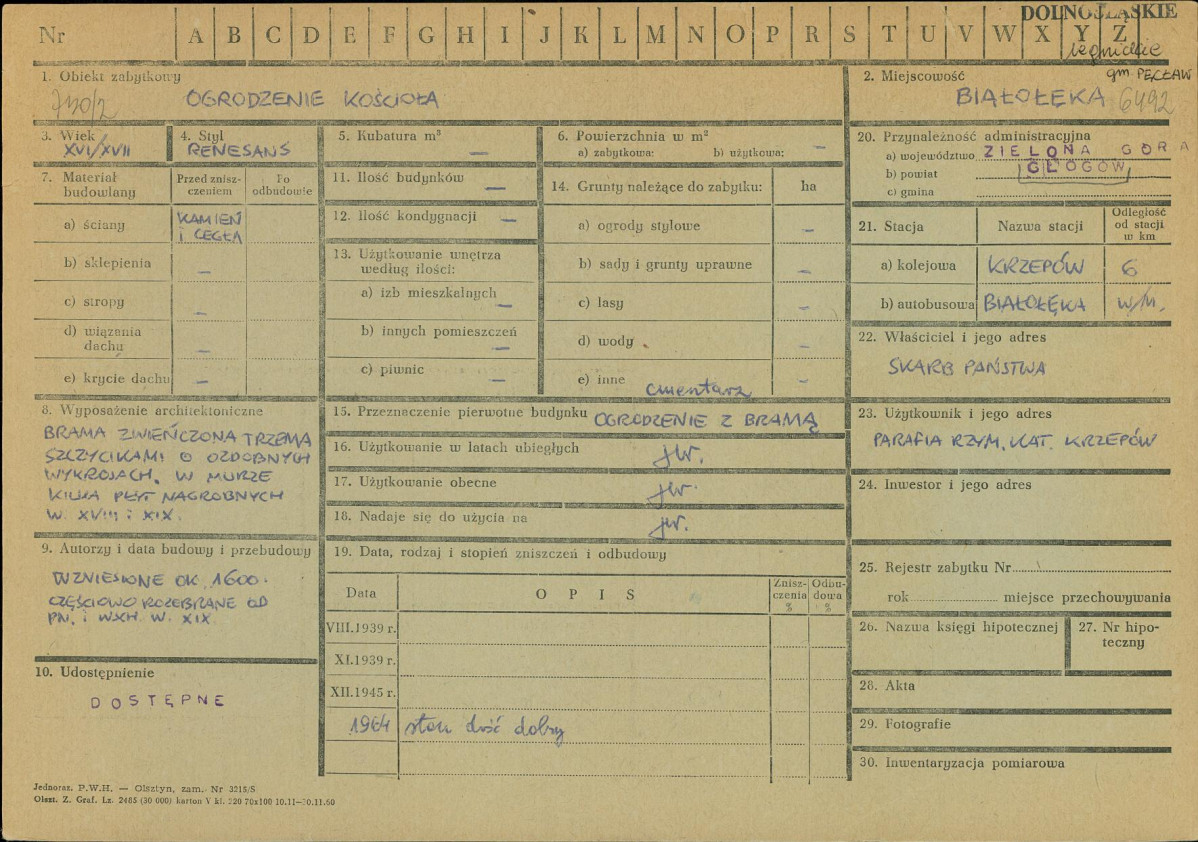 DOLNOŚLĄSKIE
Nr A B C D E F G H I J K L M N O P R S T U V W X Y Z
legnickie
gm. PĘCŁAW
1. Obiekt zabytkowy
OGRODZENIE KOŚCIOŁA
2. Miejscowość
BIAŁOŁĘKA 6492
3. Wiek
XVI/XVII
4. Styl
RENESANS
5. Kubatura m³ —
6. Powierzchnia w m²
a) zabytkowa: b) użytkowa: —
7. Materiał budowlany
Przed znisz-czeniem
Po odbudowie
a) ściany KAMIEŃ
i CEGŁA
b) sklepienia —
c) stropy —
d) wiązania dachu —
e) krycie dachu —
8. Wyposażenie architektoniczne
BRAMA ZWIEŃCZONA TRZEMA
SZCZYCIKAMI O OZDOBNYCH
WYKROJACH. W MURZE
KILKA PŁYT NAGROBNYCH
W. XVIII i XIX.
9. Autorzy i data budowy i przebudowy
WZNIESIONE OK. 1600.
CZĘŚCIOWO ROZEBRANE OD
PN. i WSCH. W. XIX.
10. Udostępnienie
DOSTĘPNE
11. Ilość budynków —
12. Ilość kondygnacji —
13. Użytkowanie wnętrza
według ilości:
a) izb mieszkalnych —
b) innych pomieszczeń —
c) piwnic —
14. Grunty należące do zabytku: ha
a) ogrody stylowe —
b) sady i grunty uprawne —
c) lasy —
d) wody —
e) inne cmentarz —
15. Przeznaczenie pierwotne budynku OGRODZENIE Z BRAMĄ
16. Użytkowanie w latach ubiegłych jw.
17. Użytkowanie obecne jw.
18. Nadaje się do użycia na jw.
19. Data, rodzaj i stopień zniszczeń i odbudowy
Data OPIS Znisz-czenia % Odbu-dowa %
VIII.1939 r.
XI.1939 r.
XII.1945 r.
1964 stan dość dobry
20. Przynależność administracyjna
a) województwo ZIELONA GÓRA
b) powiat GŁOGÓW
c) gmina
21. Stacja Nazwa stacji Odległość od stacji w km
a) kolejowa KRZEPÓW 6
b) autobusowa BIAŁOŁĘKA W/M.
22. Właściciel i jego adres
SKARB PAŃSTWA
23. Użytkownik i jego adres
PARAFIA RZYM. KAT. KRZEPÓW
24. Inwestor i jego adres
25. Rejestr zabytku Nr
rok miejsce przechowywania
26. Nazwa księgi hipotecznej
27. Nr hipo-
teczny
28. Akta
29. Fotografie
30. Inwentaryzacja pomiarowa
Jednoraz. P.W.H. — Olsztyn, zam. Nr 3215/S
Olszt. Z. Graf. Lz. 2485 (30 000) karton V kl. 220 70x100 10.11—30.11.60